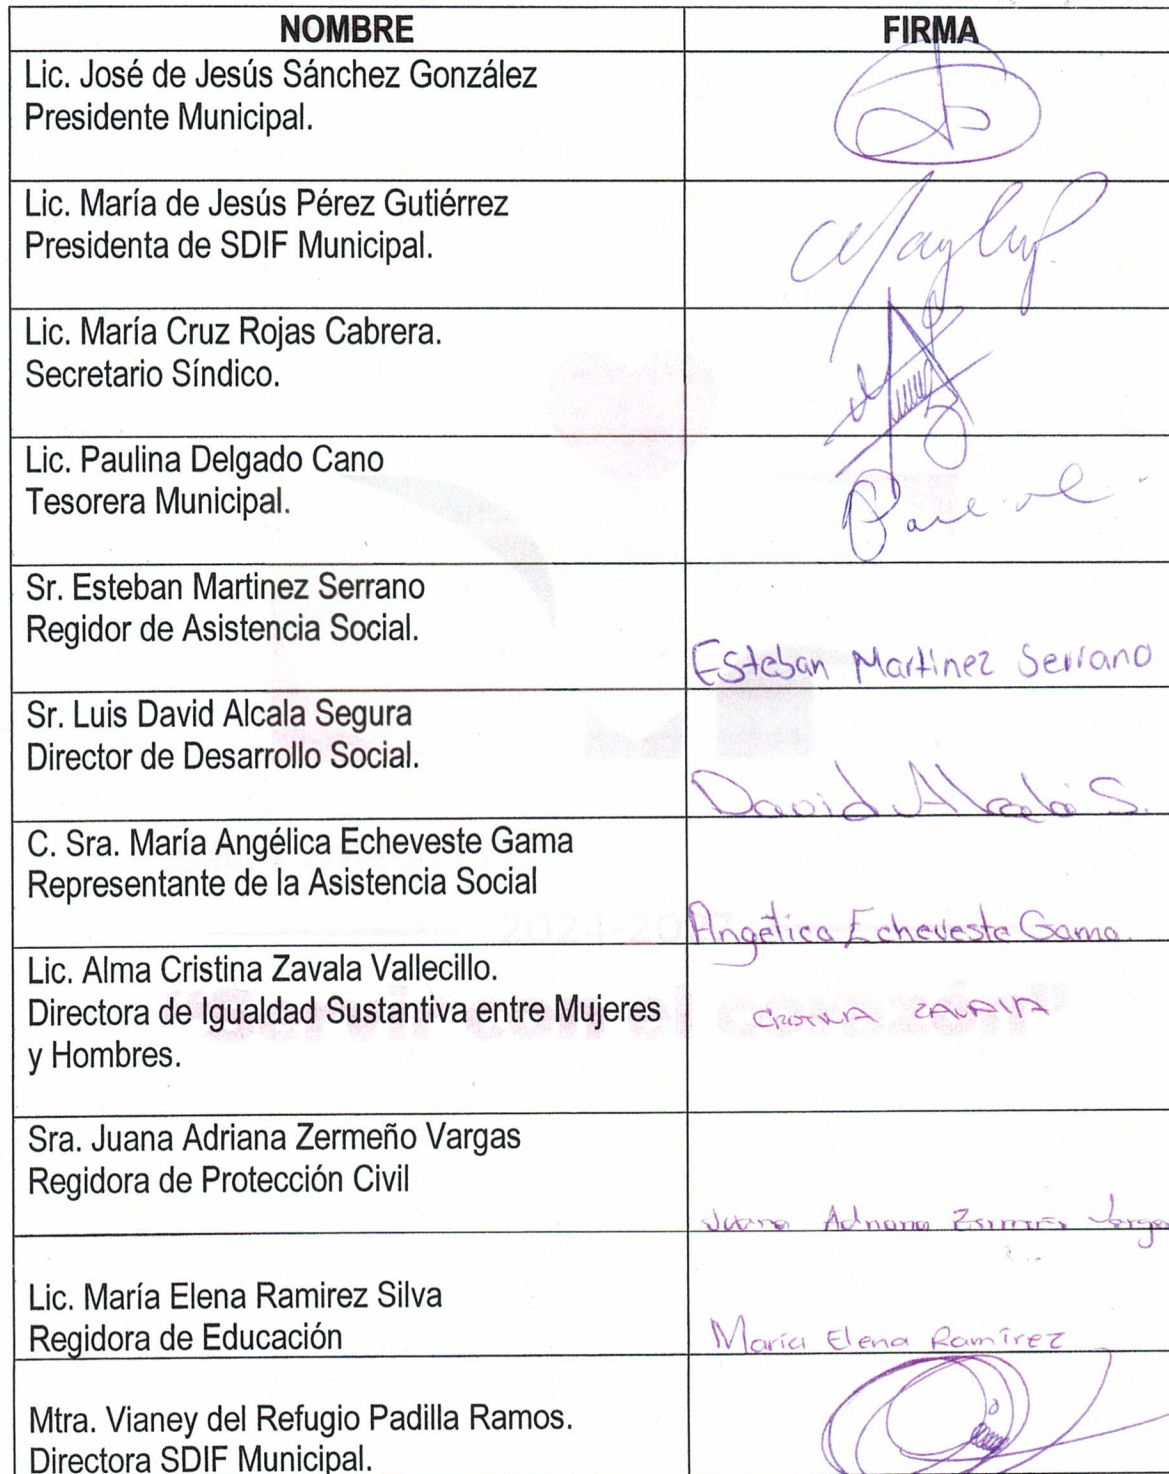 NOMBRE FIRMA
Lic. José de Jesús Sánchez González
Presidente Municipal.
Lic. María de Jesús Pérez Gutiérrez
Presidenta de SDIF Municipal.
Lic. María Cruz Rojas Cabrera.
Secretario Síndico.
Lic. Paulina Delgado Cano
Tesorera Municipal.
Sr. Esteban Martinez Serrano
Regidor de Asistencia Social.
Esteban Martinez Serrano
Sr. Luis David Alcala Segura
Director de Desarrollo Social.
David Alcalá S.
C. Sra. María Angélica Echeveste Gama
Representante de la Asistencia Social
Angélica Echeveste Gama.
2024-2027
Lic. Alma Cristina Zavala Vallecillo.
Directora de Igualdad Sustantiva entre Mujeres
y Hombres.
CRISTINA ZAVALA
"Servir con el corazón"
Sra. Juana Adriana Zermeño Vargas
Regidora de Protección Civil
Juana Adriana Zermeño Vargas
Lic. María Elena Ramirez Silva
Regidora de Educación
María Elena Ramírez
Mtra. Vianey del Refugio Padilla Ramos.
Directora SDIF Municipal.